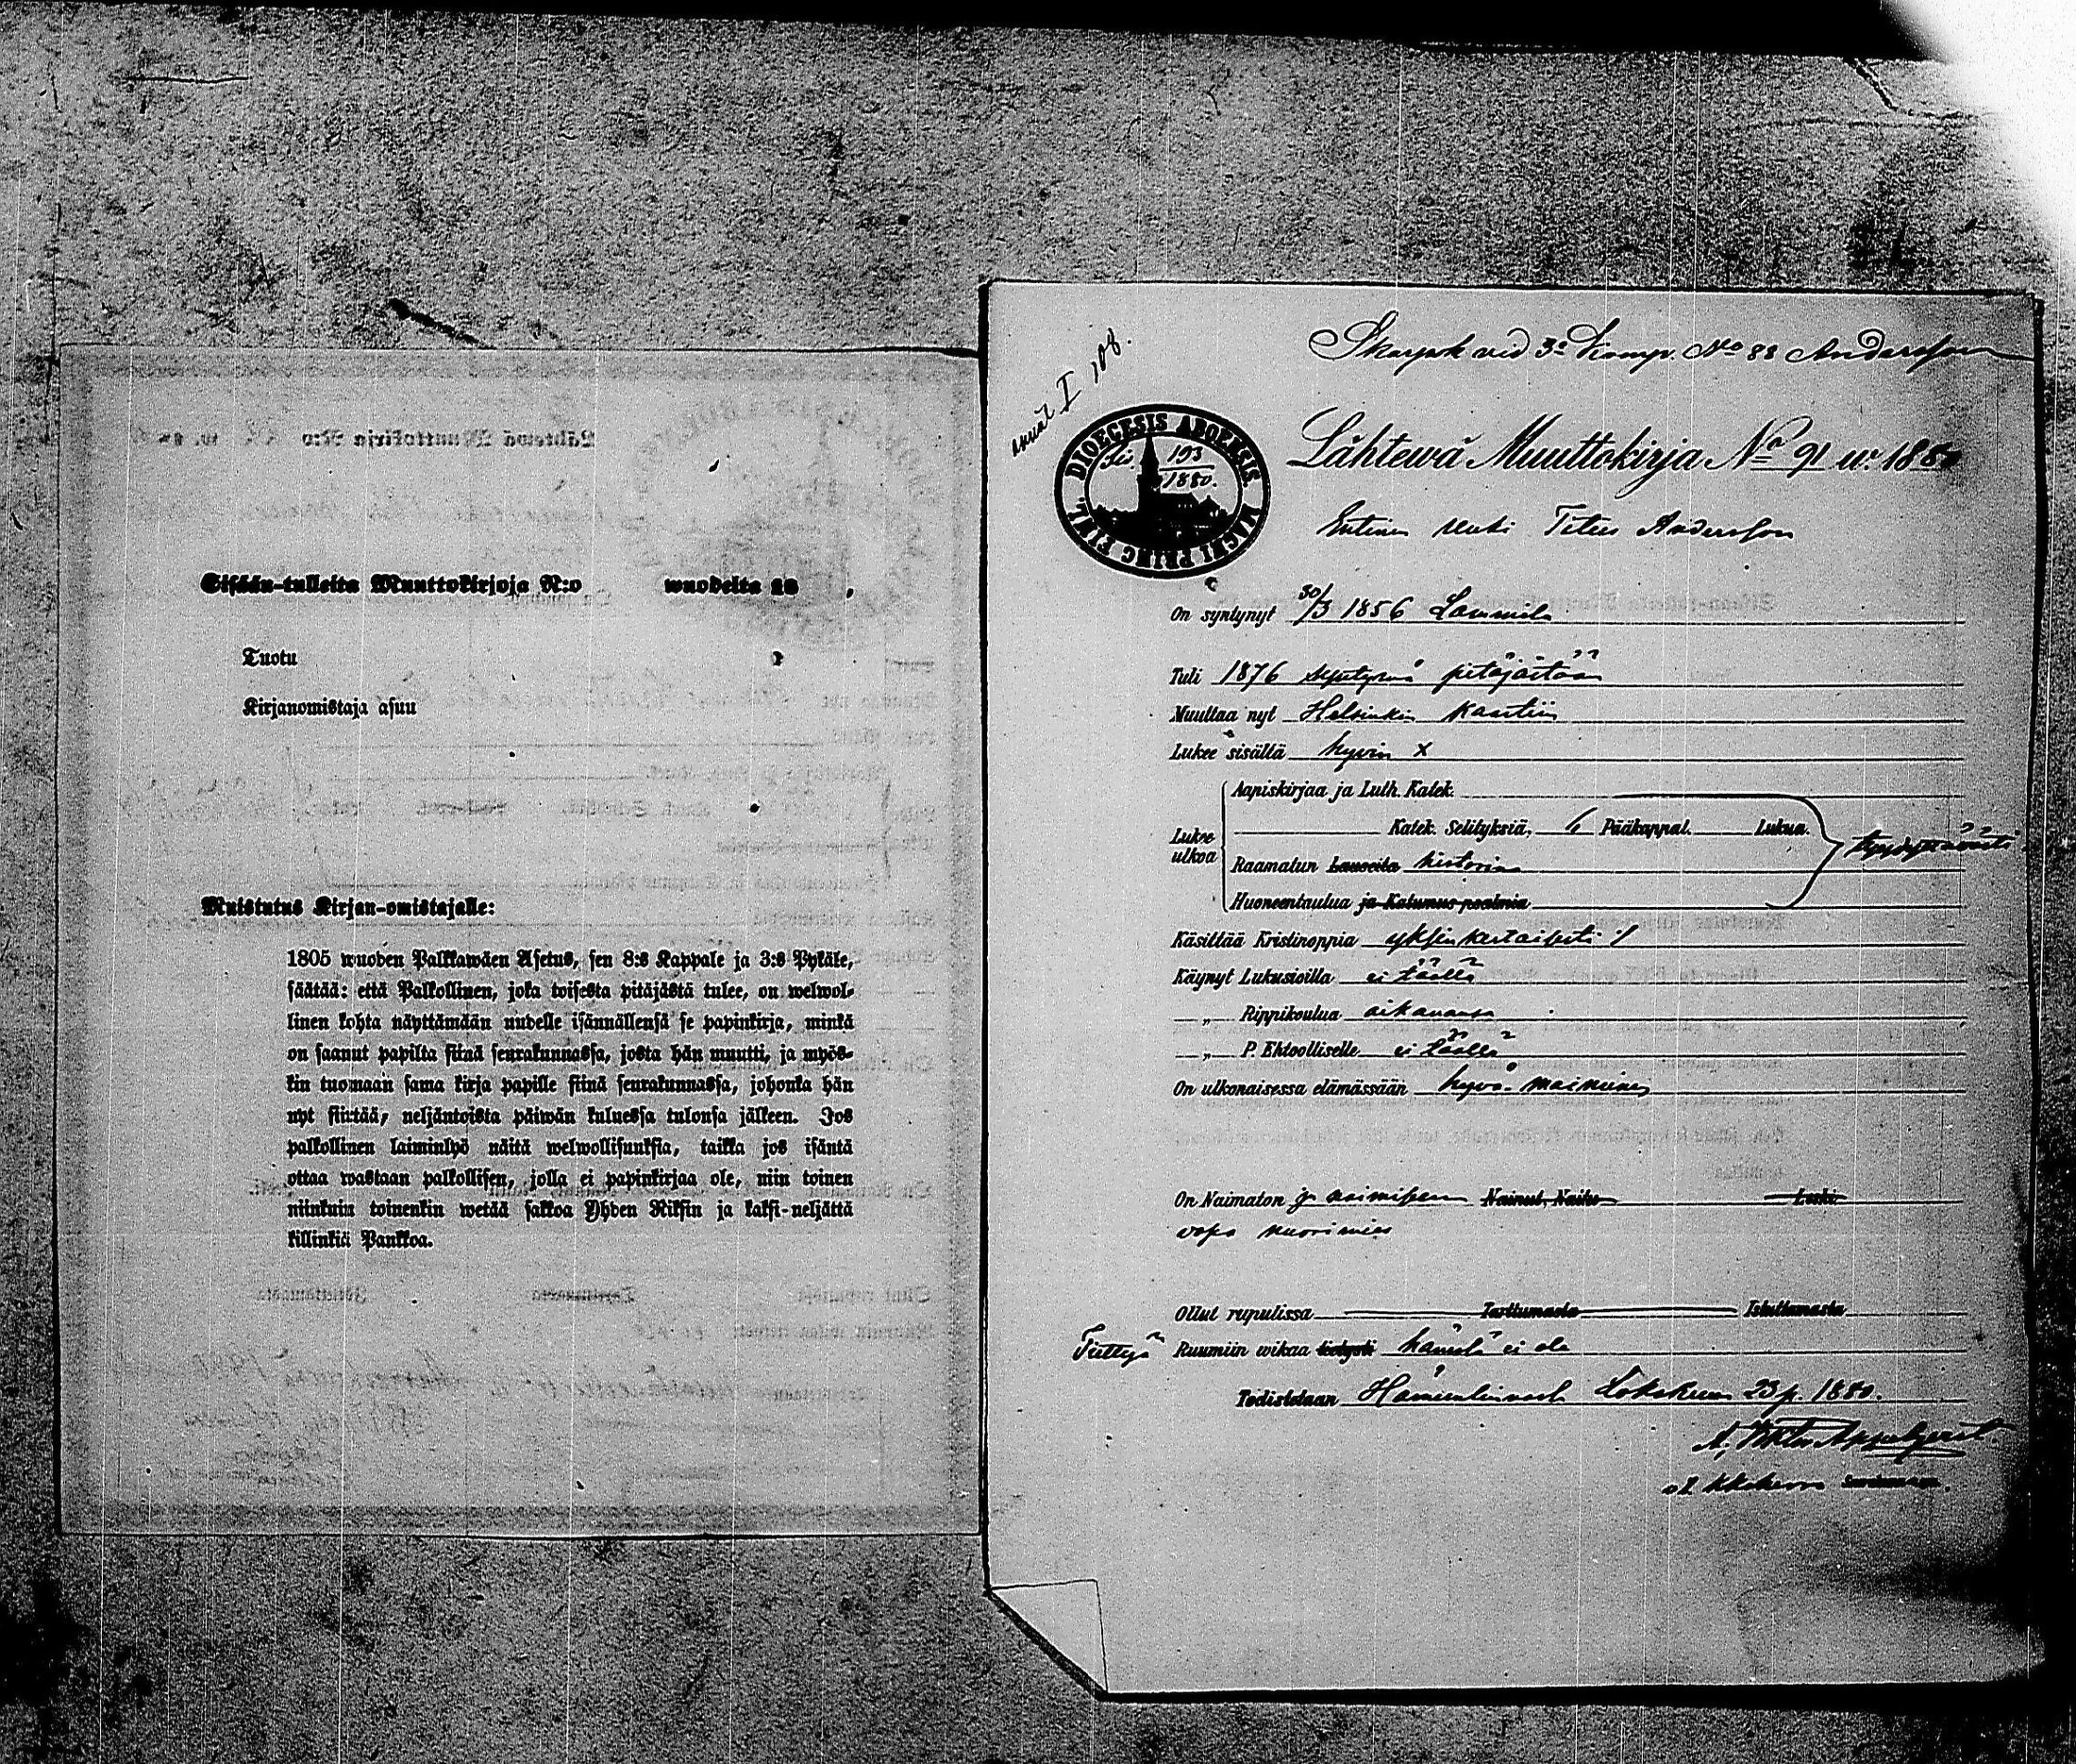 Sisään-tulleita Muuttokirjoja N:o wuodelta 18 .
Tuotu
Kirjanomistaja asuu
Muistutus Kirjan-omistajalle:
1805 wuoden Palkkawäen Asetus, sen 8:s Kappale ja 3:s Pykäle,
säätää: että Palkollinen, joka toisesta pitäjästä tulee, on welwol-
linen kohta näyttämään uudelle isännällensä se papinkirja, minkä
on saanut papilta siinä seurakunnassa, josta hän muutti, ja myös-
kin tuomaan sama kirja papille siinä seurakunnassa, johonka hän
nyt siirtää, neljäntoista päiwän kuluessa tulonsa jälkeen. Jos
palkollinen laiminlyö näitä welwollisuuksia, taikka jos isäntä
ottaa wastaan palkollisen, jolla ei papinkirjaa ole, niin toinen
niinkuin toinenkin wetää sakkoa Yhden Riksin ja kaksi-neljättä
killinkiä Pankkoa.
Skarpsk vid 3e Komp. No 88 Andersson
I 108.
DIOECESIS ABOENSIS MAGNI PRINC. FINL.
193
1880.
Lähtewä Muuttokirja No 91 w. 1880
Entinen renki Titus Andersson
On syntynyt 30/3 1856 Lammila
Tuli 1876 syntymä pitäjästään
Muuttaa nyt Helsinkin Kaartiin
Lukee sisältä hyvin x
Aapiskirjaa ja Luth. Katek.
Lukee ulkoa
Katek. Selityksiä, Pääkappal. Lukua. tyydyttäwästi
Raamatun Lauseita historia
Huoneentaulua ja Katumus-psalmia
Käsittää Kristinoppia yksinkertaisesti
Käynyt Lukusioilla ei täällä
„ Rippikoulua aikanansa
„ P. Ehtoolliselle ei täällä
On ulkonaisessa elämässään hyvä-maineinen
On Naimaton ja naimiseen Nainut, Naitu Leski
vapa nuorimies
Ollut rupulissa Tarttumasta Istuttamasta
Tiettyä Ruumiin wikaa tietysti hänellä ei ole
Todistetaan Hämeenlinnassa Lokakuun 23 p. 1880.